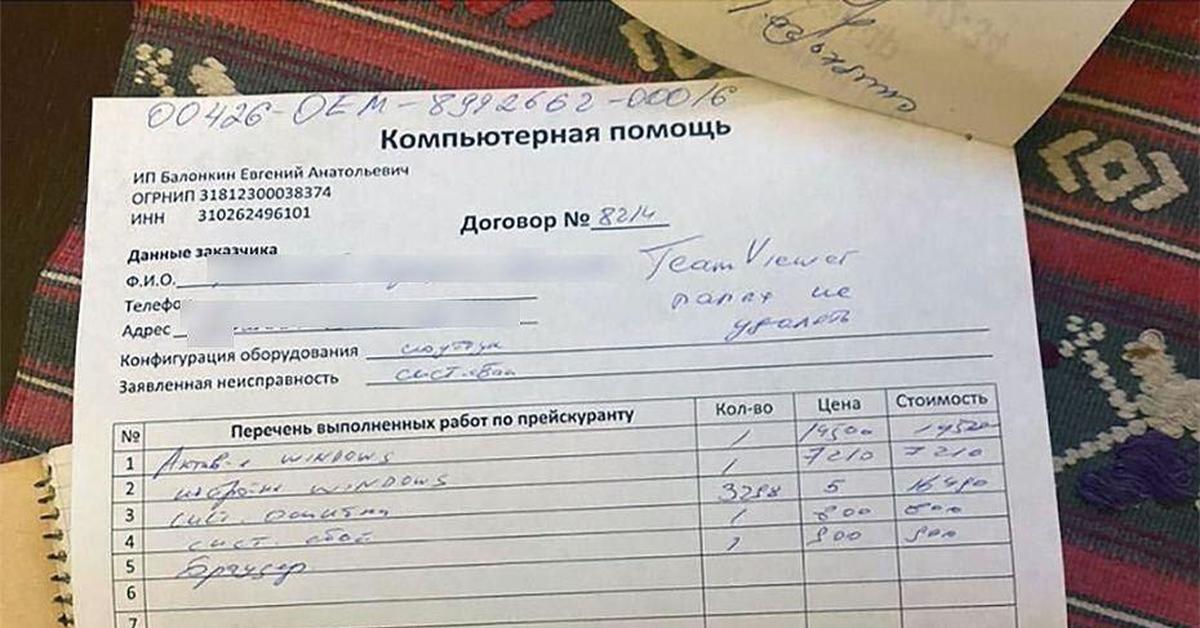 00426-OEM-8992662-00016
Компьютерная помощь
ИП Балонкин Евгений Анатольевич
ОГРНИП 31812300038374
ИНН 310262496101
Договор № 8214
Данные заказчика
Ф.И.О.
TeamViewer
папку не
удалять
Телефо
Адрес
Конфигурация оборудования ноутбук
Заявленная неисправность сист. сбой
№ Перечень выполненных работ по прейскуранту Кол-во Цена Стоимость
1 14500
1 Актив-я WINDOWS 1 7210 7210
2 настройка WINDOWS 3298 5 16490
3 сист. ошибки 1 800 800
4 сист. сбой 1 800 800
5 браузер
6
7